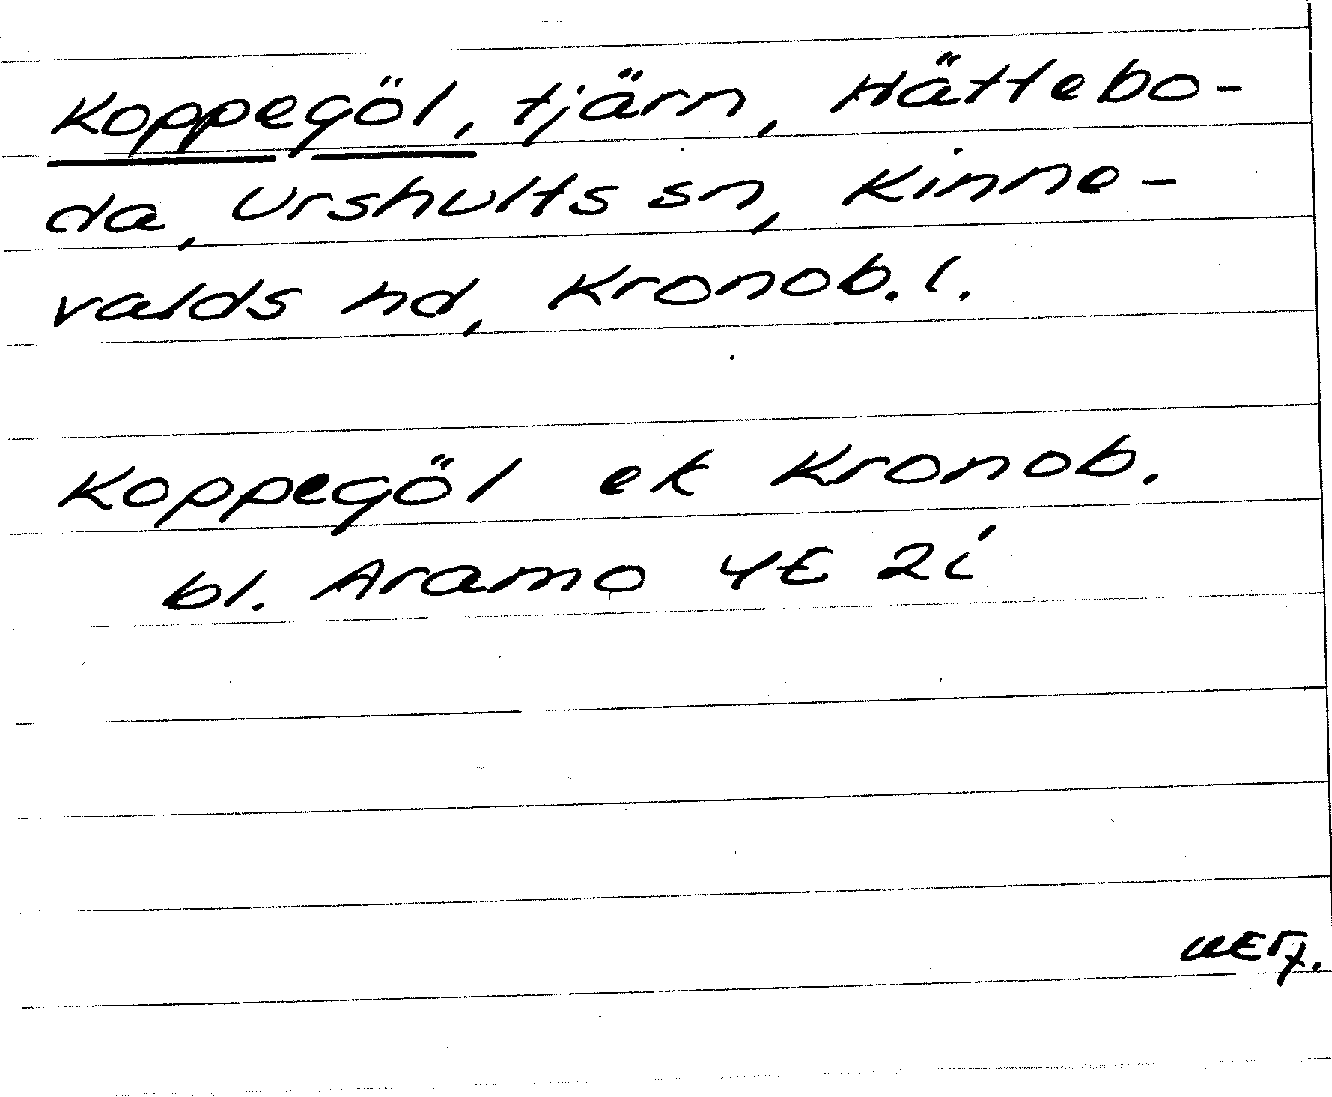 Koppegöl, tjärn, Hättebo-
da, Urshults sn, Kinne-
valds hd, Kronob. l.
Koppegöl ek Kronob.
bl. Aramo 4E 2i